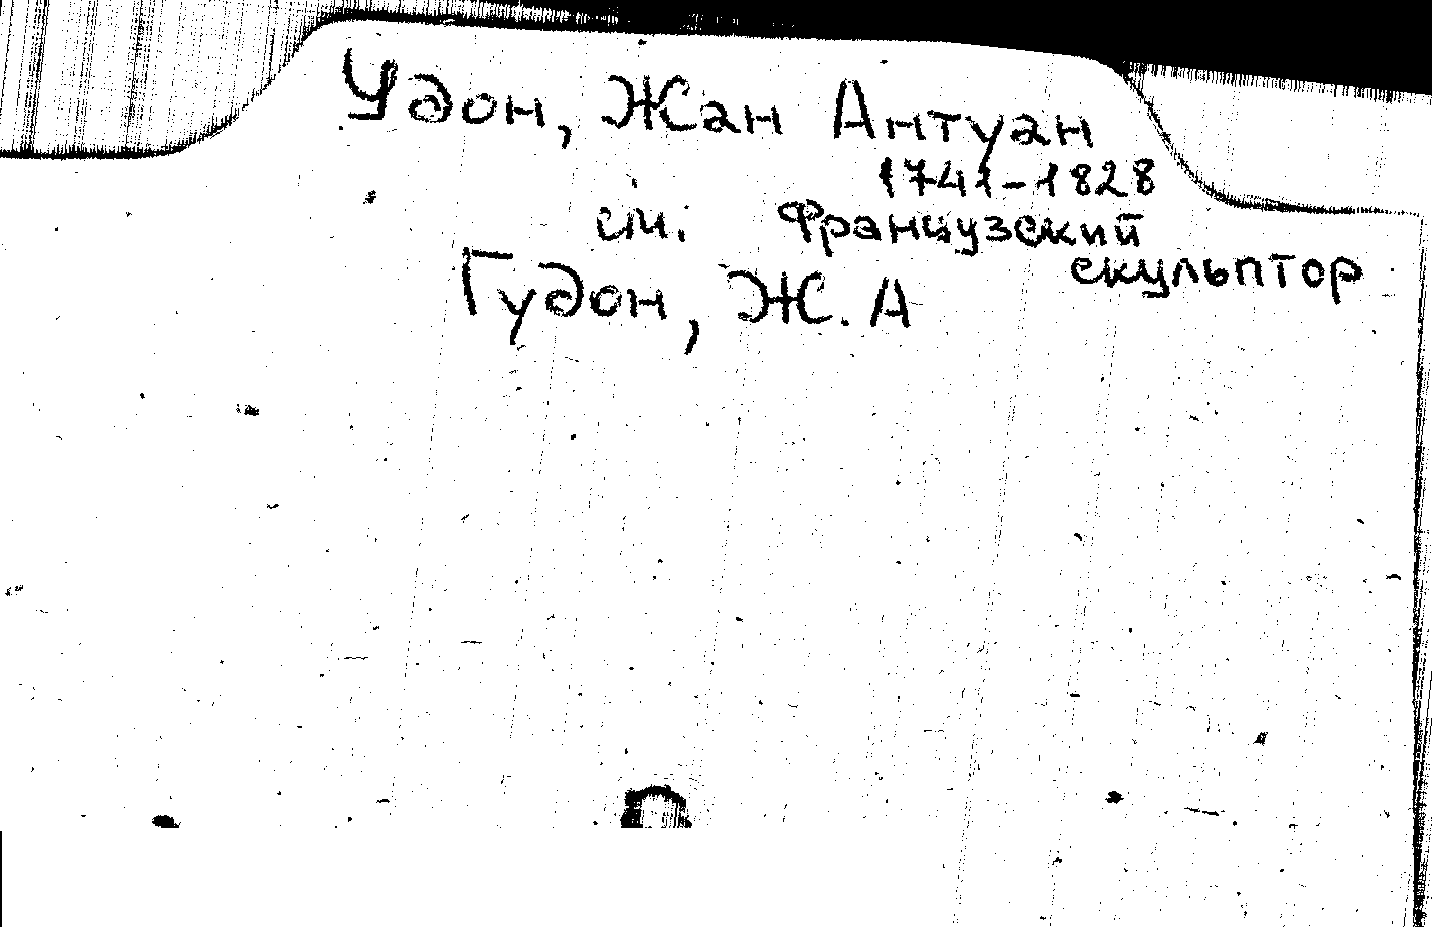 Удон, Жан Антуан
1741-1828
см. Французский
скульптор
Гудон, Ж. А